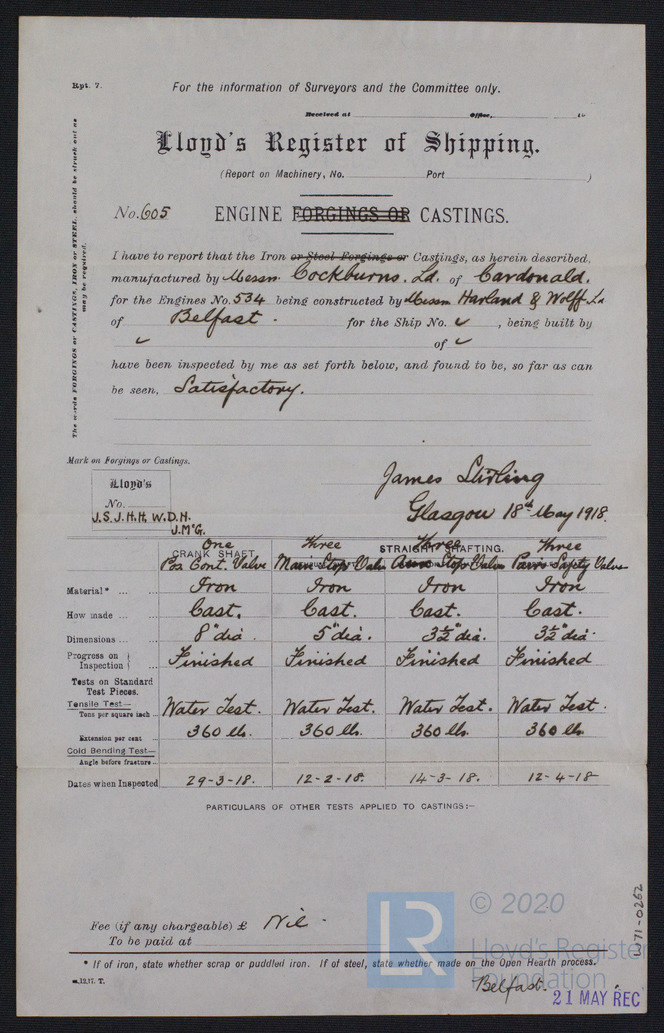 Rpt. 7.
For the information of Surveyors and the Committee only.
Received at Office, 19
Lloyd's Register of Shipping.
(Report on Machinery, No. Port )
No. 605 ENGINE FORGINGS OR CASTINGS.
The words FORGINGS or CASTINGS, IRON or STEEL, should be struck out as
may be required.
I have to report that the Iron or Steel Forgings or Castings, as herein described,
manufactured by Messrs Cockburns. Ld. of Cardonald.
for the Engines No. 534 being constructed by Messrs Harland & Wolff Ld
of Belfast. for the Ship No. ✓, being built by
✓ of ✓
have been inspected by me as set forth below, and found to be, so far as can
be seen, Satisfactory.
Mark on Forgings or Castings.
Lloyd's
No.
J.S. J.H.H. W.D.H.
J.McG.
James Stirling
Glasgow 18th May 1918.
CRANK SHAFT. STRAIGHT SHAFTING.
One Three Three Three
Cont. Valve Main Stop Valve Stop Valve Safety Valve
Material* ... Iron Iron Iron Iron
How made ... Cast. Cast. Cast. Cast.
Dimensions ... 8" dia. 5" dia. 3½" dia. 3½" dia.
Progress on Inspection ... Finished Finished Finished Finished
Tests on Standard
Test Pieces.
Tensile Test— Water Test. Water Test. Water Test. Water Test.
Tons per square inch ...
Extension per cent ... 360 lb. 360 lb. 360 lb. 360 lb.
Cold Bending Test—
Angle before fracture ...
Dates when Inspected 29-3-18. 12-2-18. 14-3-18. 12-4-18
PARTICULARS OF OTHER TESTS APPLIED TO CASTINGS:—
Fee (if any chargeable) £ Nil.
To be paid at
* If of iron, state whether scrap or puddled iron. If of steel, state whether made on the Open Hearth process.
12,17. T.
Belfast.
21 MAY REC
W71-0262
LR
© 2020
Lloyd's Register
Foundation